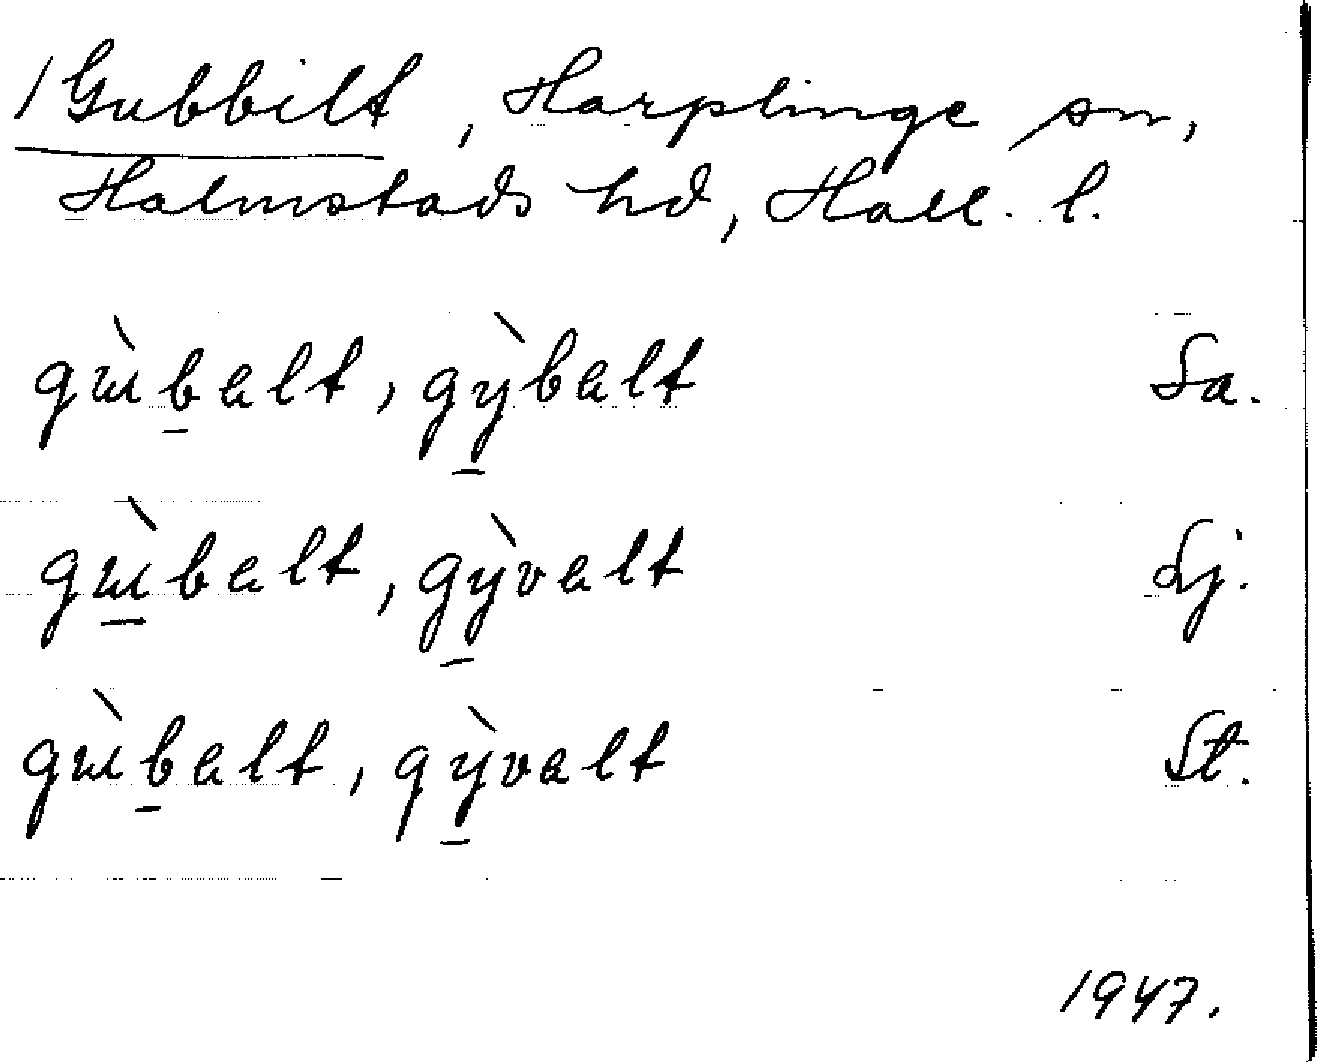 /Gubbilt, Harplinge sn,
Halmstads hd, Hall. l.
gɯ̀balt, gỳbalt Sa.
gɯ̀balt, gỳvalt Lj.
gɯ̀balt, gỳvalt St.
1947.